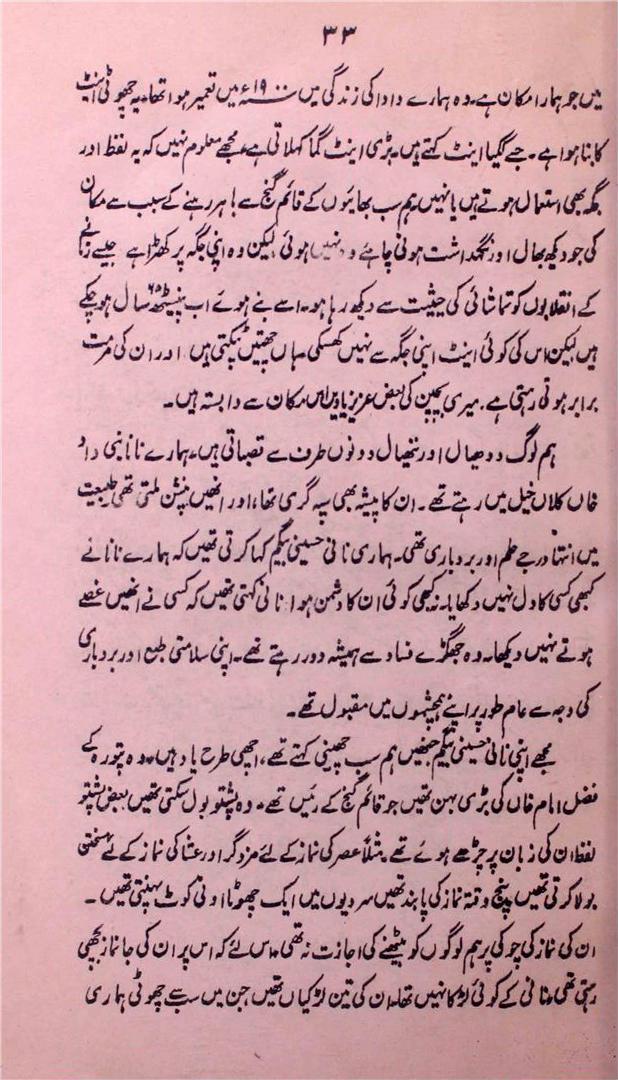 ۳۳
میں جو ہمارا مکان ہے۔ وہ ہمارے دادا کی زندگی میں ۱۹۰۰ء میں تعمیر ہوا تھا۔ یہ چھوٹی اینٹ
کا بنا ہوا ہے۔ جسے گکیا اینٹ کہتے ہیں۔ بڑی اینٹ گما کہلاتی ہے۔ مجھے معلوم نہیں کہ یہ لفظ اور
جگہ بھی استعمال ہوتے ہیں یا نہیں۔ ہم سب بھائیوں کے قائم گنج سے باہر رہنے کے سبب سے مکان
کی جو دیکھ بھال اور نگہداشت ہونی چاہئے وہ نہیں ہوئی لیکن وہ اپنی جگہ پر کھڑا ہے جیسے زمانے
کے انقلابوں کو تماشائی کی حیثیت سے دیکھ رہا ہو۔ اسے بنے ہوئے اب پینسٹھ ۶۵ سال ہو چکے
ہیں لیکن اس کی کوئی اینٹ اپنی جگہ سے نہیں کھسکی۔ ہاں چھتیں ٹپکتی ہیں اور ان کی مرمت
برابر ہوتی رہتی ہے۔ میری بچپن کی بعض عزیز یادیں اس مکان سے وابستہ ہیں۔
ہم لوگ ددھیال اور ننھیال دونوں طرف سے قصباتی ہیں۔ ہمارے نانا نبی داد
خاں کلاں خیل میں رہتے تھے۔ ان کا پیشہ بھی سپہ گری تھا، اور انھیں پنشن ملتی تھی طبیعت
میں انتہا درجے حلم اور بردباری تھی۔ ہماری نانی حسینی بیگم کہا کرتی تھیں کہ ہمارے نانا نے
کبھی کسی کا دل نہیں دکھایا۔ نہ کبھی کوئی ان کا دشمن ہوا۔ نانی کہتی تھیں کہ کسی نے انھیں غصے
ہوتے نہیں دیکھا۔ وہ جھگڑے فساد سے ہمیشہ دور رہتے تھے۔ اپنی سلامتی طبع اور بردباری
کی وجہ سے عام طور پر اپنے ہمچشموں میں مقبول تھے۔
مجھے اپنی نانی حسینی بیگم جنھیں ہم سب چھپنی کہتے تھے، اچھی طرح یاد ہیں۔ وہ پتورہ کے
فضل امام خاں کی بڑی بہن تھیں جو قائم گنج کے رئیس تھے۔ وہ پشتو بول سکتی تھیں بعض پشتو
لفظ ان کی زبان پر چڑھے ہوئے تھے مثلاً عصر کی نماز کے لئے مزدگر اور عشا کی نماز کے لئے
بولا کرتی تھیں۔ پنج وقتہ نماز کی پابند تھیں سردیوں میں ایک چھوٹا اونی کوٹ پہنتی تھیں۔
ان کی نماز کی چوکی پر ہم لوگوں کو بیٹھنے کی اجازت نہ تھی۔ اس لئے کہ اس پر ان کی جانماز بچھی
رہتی تھی۔ نانی کے کوئی لڑکا نہیں تھا۔ ان کی تین لڑکیاں تھیں جن میں سب سے چھوٹی ہماری